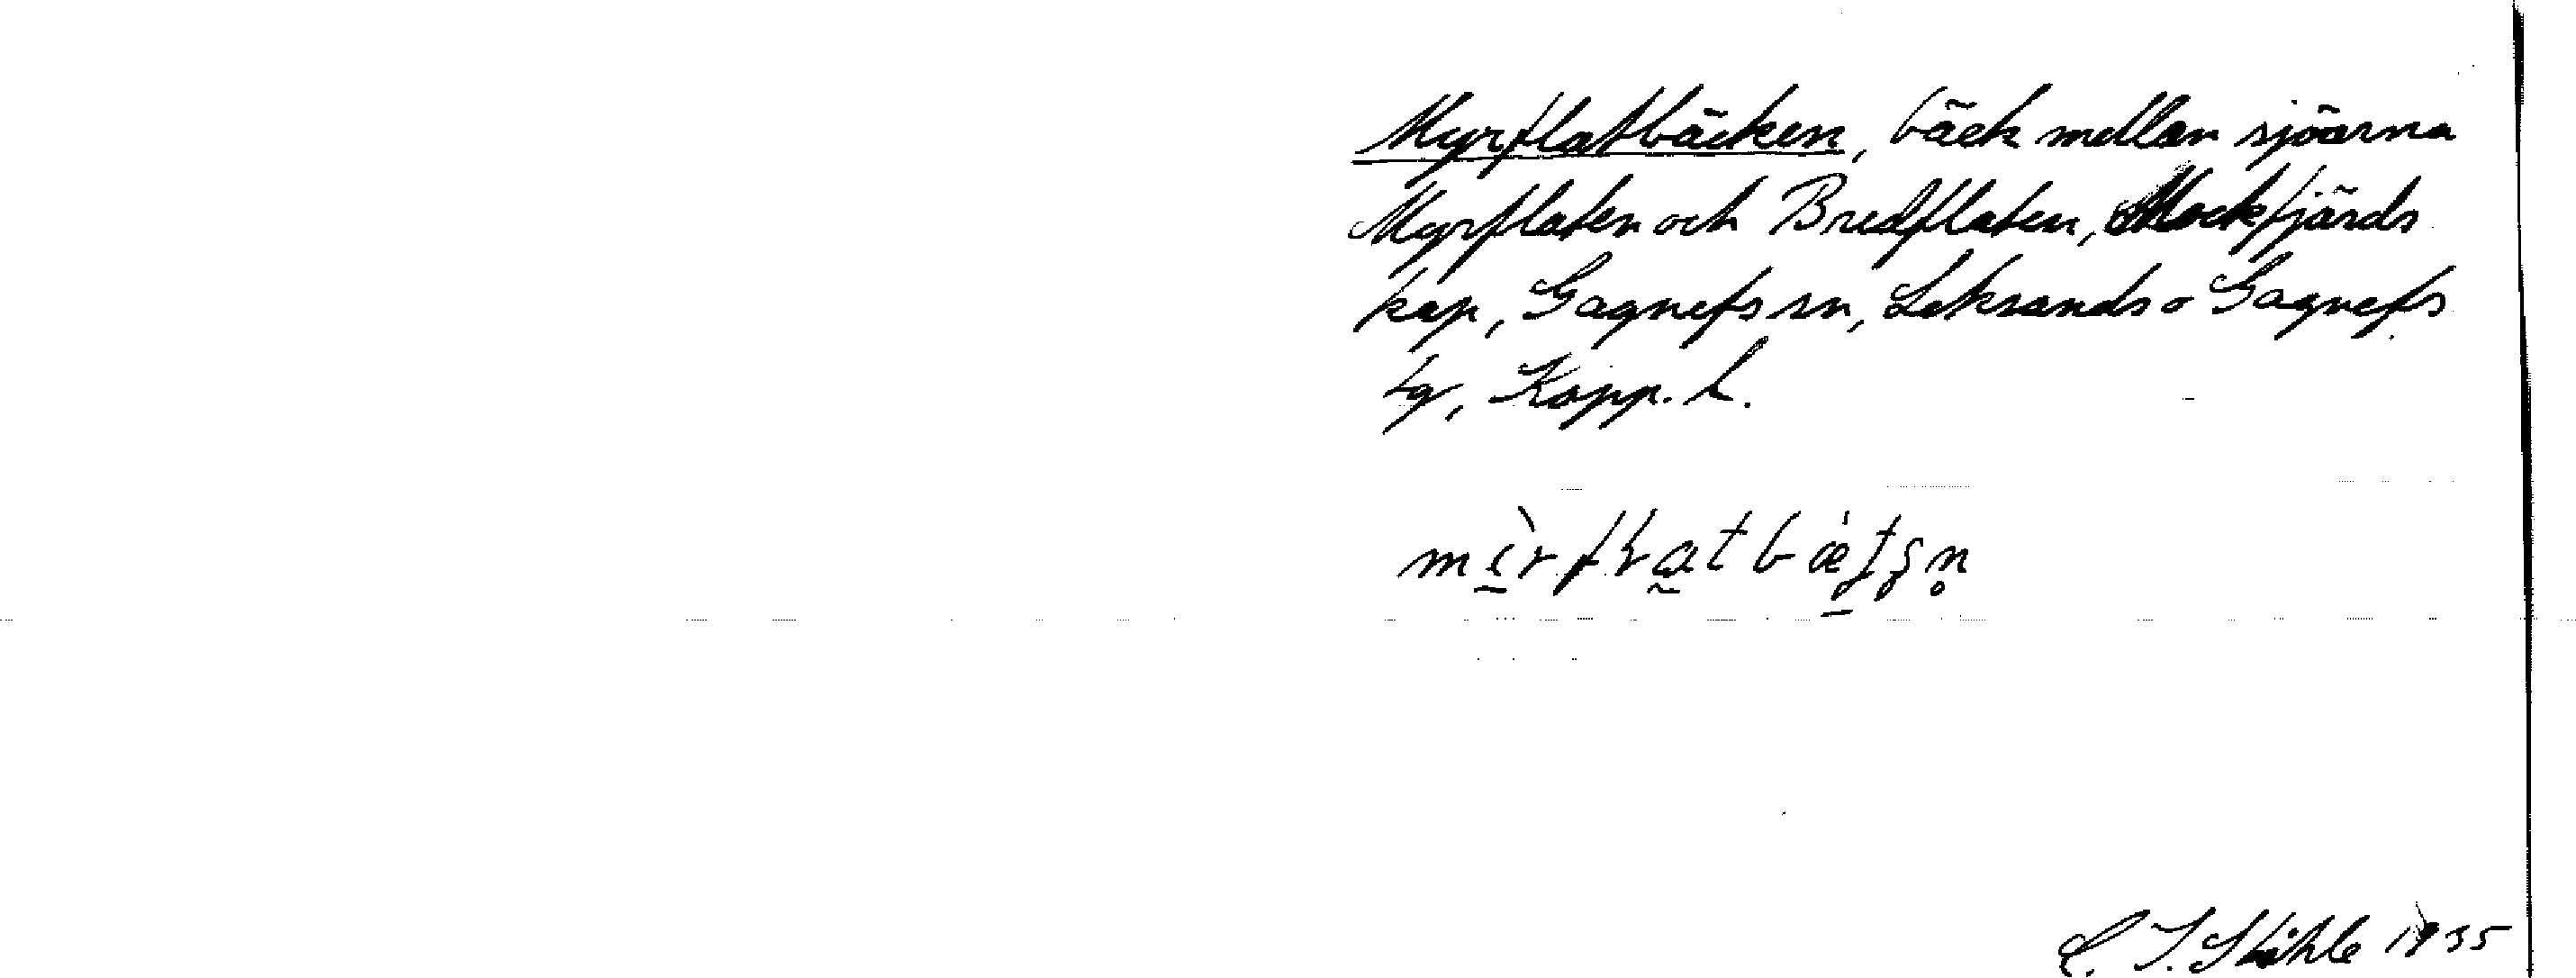 Myrflatbäcken, bäck mellan sjöarna
Myrflaten och Bredflaten, Mockfjärds
kap, Gagnefs sn, Leksands o Gagnefs
tg, Kopp. l.
C. I. Ståhle 1935